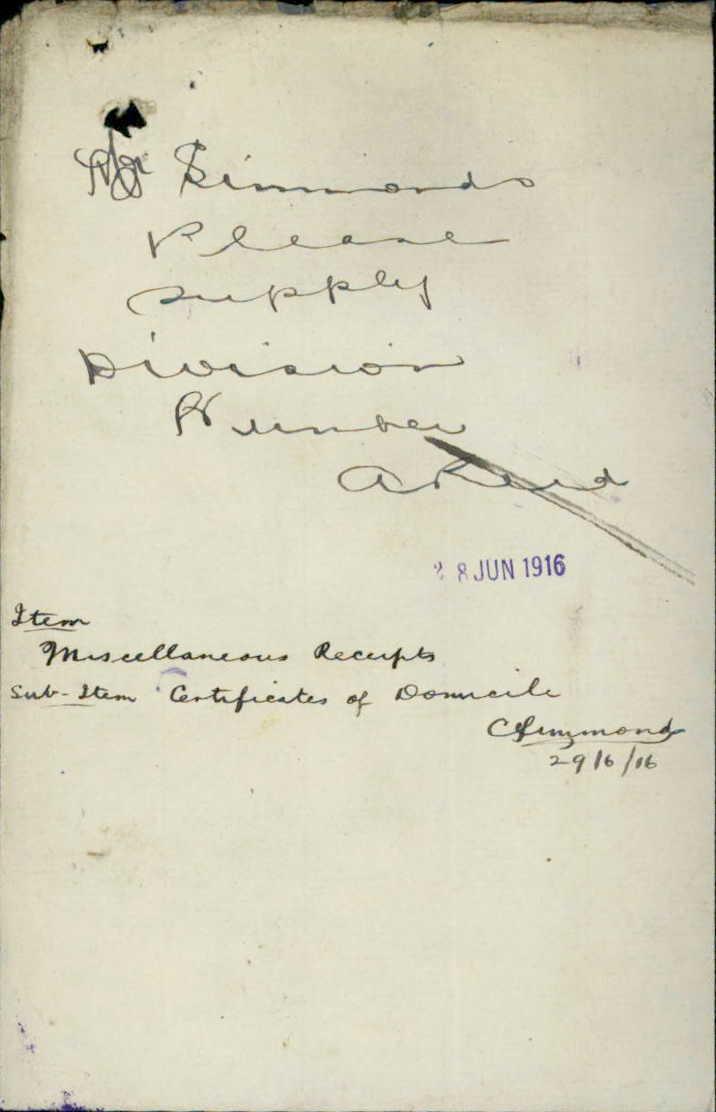 Mr Simmonds
Please
supply
Division
Number
A Reid
28 JUN 1916
Item
Miscellaneous Receipts
Sub-Item Certificates of Domicile
C Simmonds
29/6/16